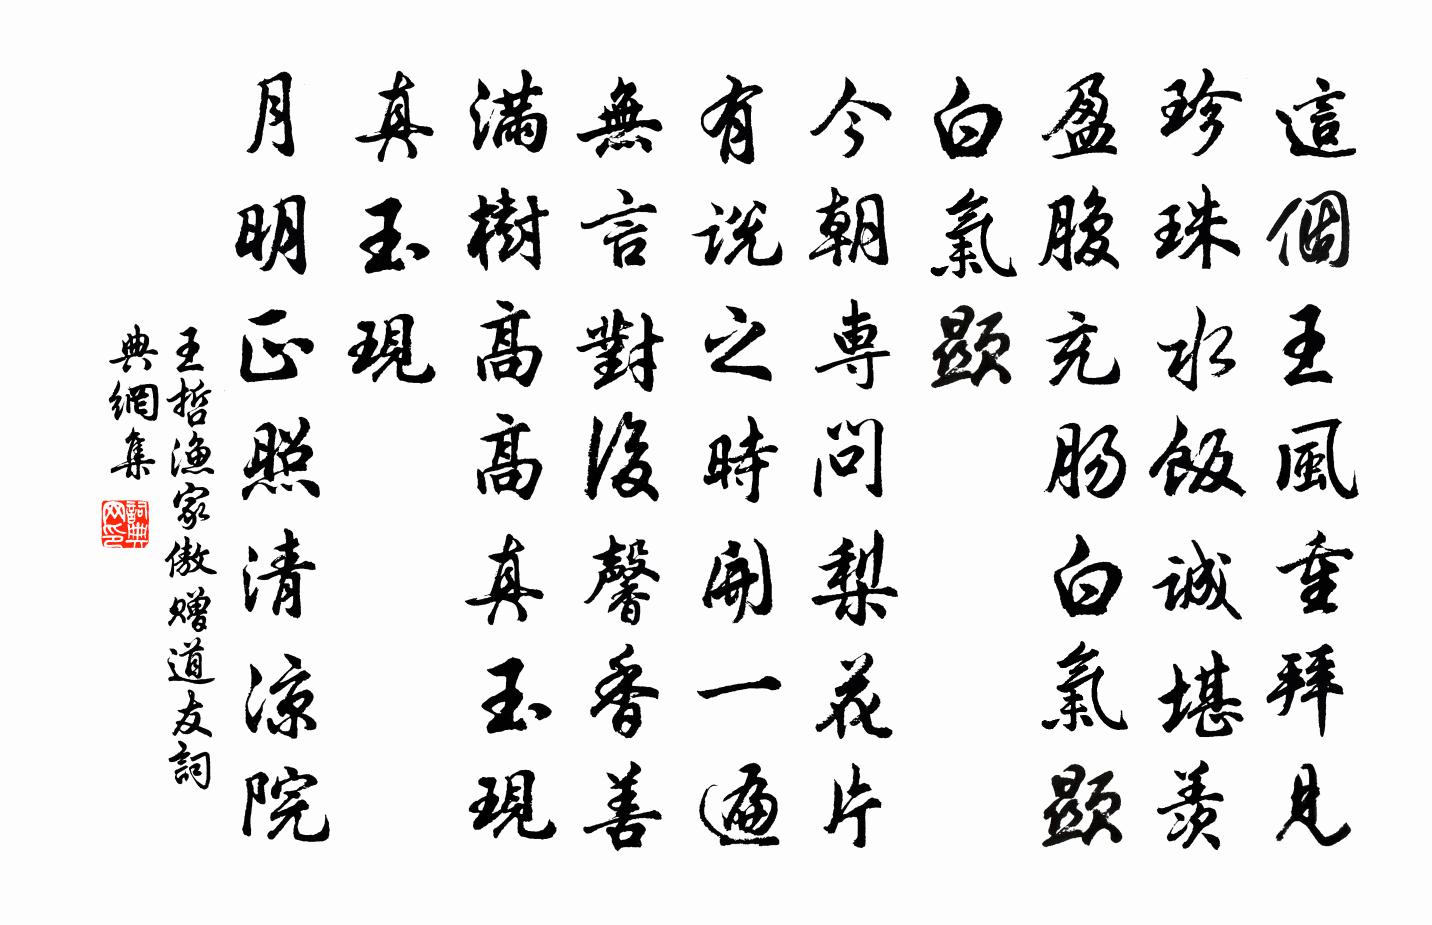 這個王風重拜見
珍珠水飯誠堪羨
盈腹充肠白氣顯
白氣顯
今朝専問梨花片
有説之時開一遍
無言對後馨香善
滿樹高高真玉現
真玉現
月明正照清涼院
王哲漁家傲赠道友詞
典網集
詞典网印